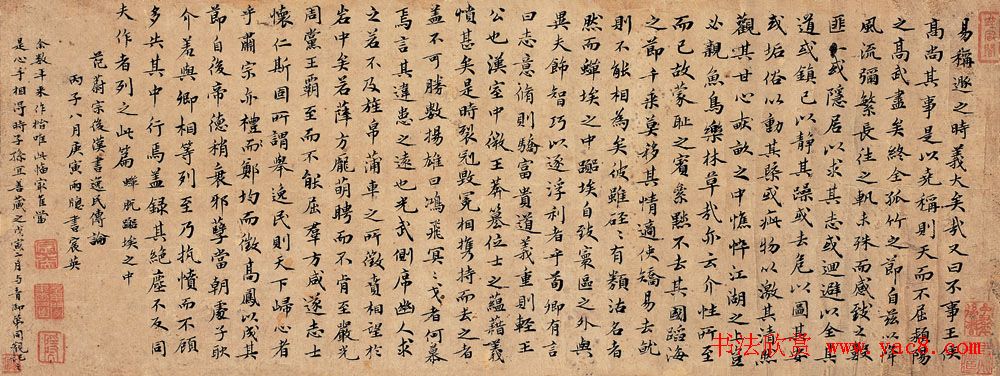 易稱遯之時義大矣哉又曰不事王侯
高尚其事是以堯稱則天而不屈潁陽
之高武盡矣終全孤竹之節自茲以降
風流彌繁長往之軌未殊而感致之數
匪一或隱居以求其志或迴避以全其
道或鎮己以靜其躁或去危以圖其安
或垢俗以動其槩或疵物以激其清然
觀其甘心畝之中憔悴江湖之上豈
必親魚鳥樂林草哉亦云介性所至
而已故蒙恥之賓屢黜不去其國蹈海
之節千乘莫移其情適使矯易去就
則不能相為矣彼雖硜硜有類沽名者
然而蟬埃之中埃自致寰區之外與
異夫飾智巧以逐浮利者乎荀卿有言
曰志意脩則驕富貴道義重則輕王
公也漢室中微王莽篡位士之蘊藉義
憤甚矣是時裂冠毀冕相攜持而去之者
蓋不可勝數揚雄曰鴻飛冥冥弋者何慕
焉言其違患之遠也光武側席幽人求
之若不及旌帛蒲車之所徵賁相望於
岩中矣若薛方龐萌聘而不肯至嚴光
周黨王霸至而不能屈羣方咸遂志士
懷仁斯固所謂舉逸民則天下歸心者
乎肅宗亦禮鄭均而徵高鳳以成其
節自後帝德稍衰邪孽當朝處子耿
介羞與卿相等列至乃抗憤而不顧
多失其中行焉蓋錄其絕塵不及同
夫作者列之此篇 蟬脫埃之中
范蔚宗後漢書逸民傳論
丙子八月庚寅雨牕書宸英
余數年來作楷唯此幅最當
是心手相得時子孫宜善藏之戊寅二月与青同觀記
书法欣赏 www.yac8.com